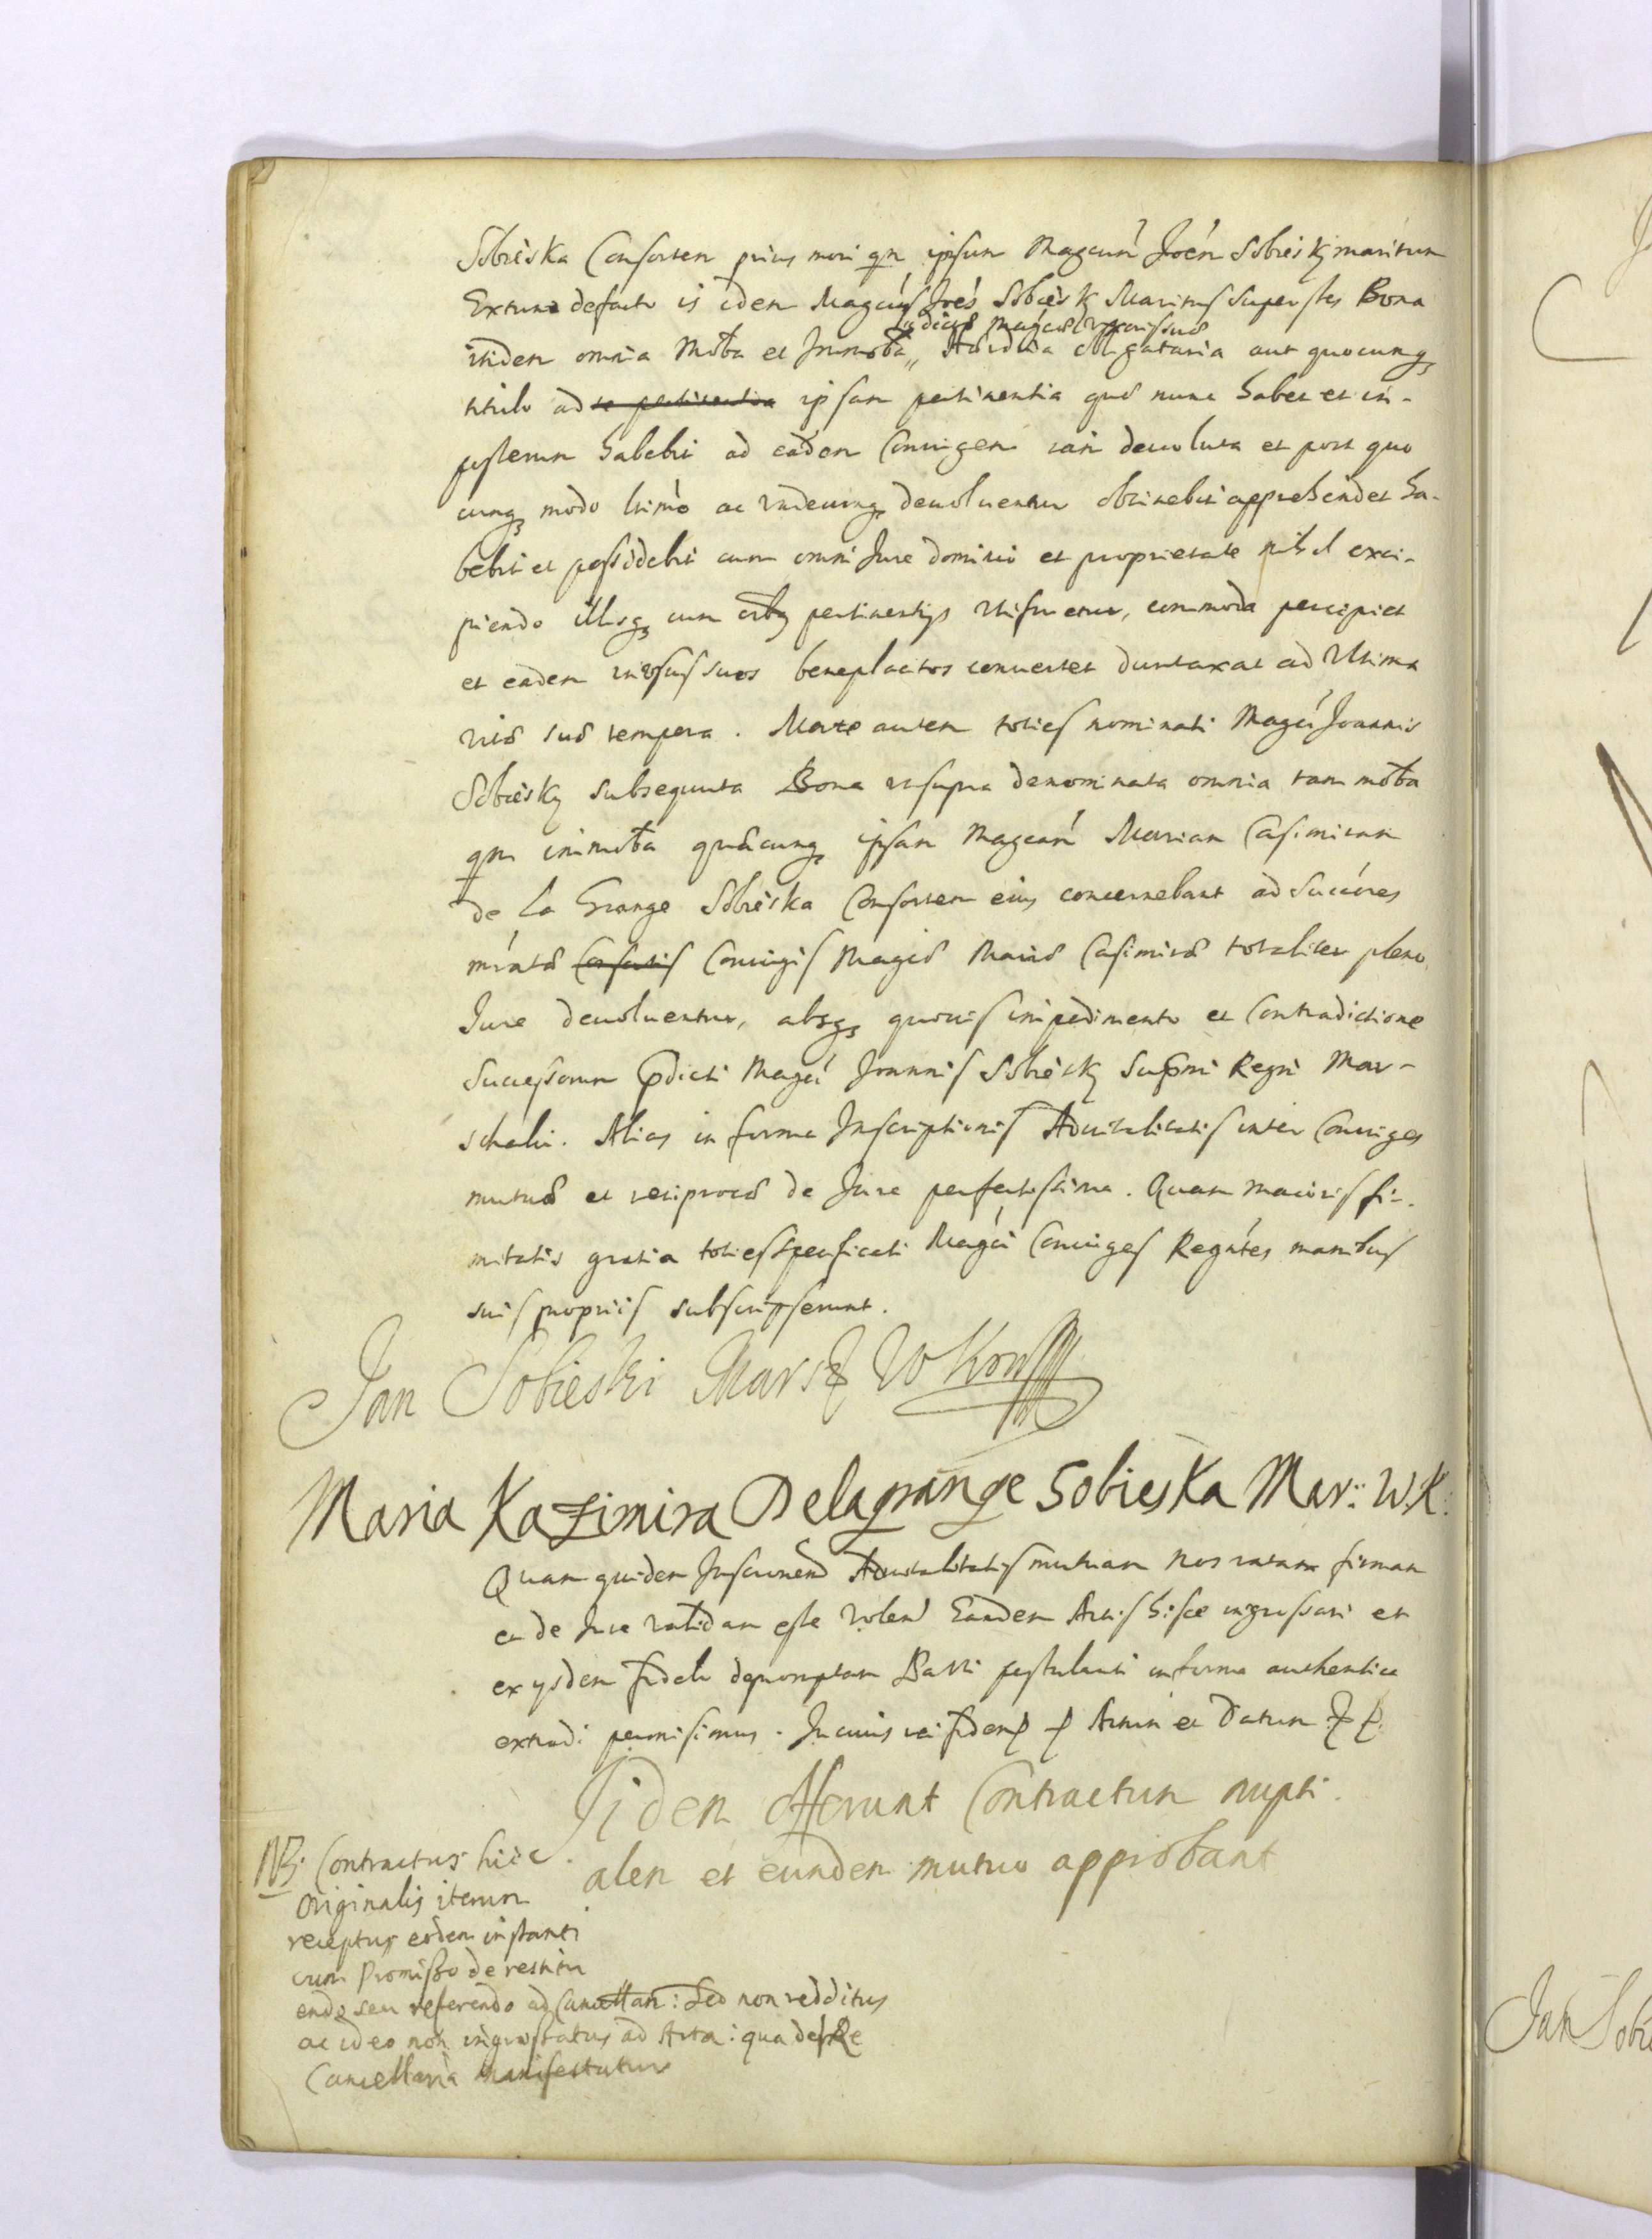 Sobieska Consortem prius mori qm ipsum Magcum Joen Sobiesky maritum
Extunc defacto is idem Magcus Joes Sobiesky Maritus superstes Bona
pdictae Magcae Uxoris suae
itidem omnia Mobta et Immobta Haeredita obligatoria aut quocunq
titulo ad se pertinentia ipsam pertinentia quae nunc habet et in-
posterum habebit ad eadem Coniugem iam devoluta et post quo
cunq modo ltimo ac undecunq devoluentur obtinebit apprehendet ha-
bebit et possidebit cum omni Jure dominio et proprietate nihil exci-
piendo illisq cum oibq pertinentijs utifruetur, commoda percipiet
et eadem in usus suos beneplacitos convertet duntaxat ad ultima
vitae suae tempora. Morte autem toties nominati Magci Joannis
Sobiesky subsequuta Bona utsupra denominata omnia tam mobta
qm immobta quaecunq ipsam Magcam Mariam Casimiram
de La Grange Sobieska Consortem eius concernebant ad Succres
mratae Consortis Coniugis Magcae Mariae Casimirae totaliter pleno
Jure devoluentur, absq quovis impedimento et Contradictione
Successorum pdicti Magci Joannis Sobiesky Supmi Regni Mar-
schalci. Alias in forma Inscriptionis Advitalitatis inter Coniuges
mutuae et reciprocae de Jure perfectissima. Quam maioris fir-
mitatis gratia toties specificati Magci Coniuges Regntes manibus
suis propriis subscripserunt.
Jan Sobieski Marsz W Kor
Maria Kazimira Delagrange Sobieska Mar: W.K:
Quam quidem Inscriptnem Advitalitatis mutuam nos ratam firmam
et de Jure validam esse volen Eandem Actis hisce ingrossari et
ex ysdem fideli depromptam Parti postulanti in forma authentica
extradi permisimus. In cuius rei fidem Actum et Datum
Iidem offerunt Contractum nupti.
alem et eundem mutuo approbant
NB. Contractus hicc
originalis iterum
receptus eodem instanti
cum Promisso de restitu
endo seu referendo ad Cancellar: sed non redditus
ac ideo non ingrossatus ad Acta: qua de re
Cancellaria manifestatur
Jan Sobie